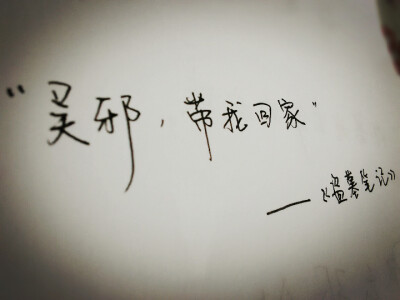 “吴邪，带我回家”
——《盗墓笔记》